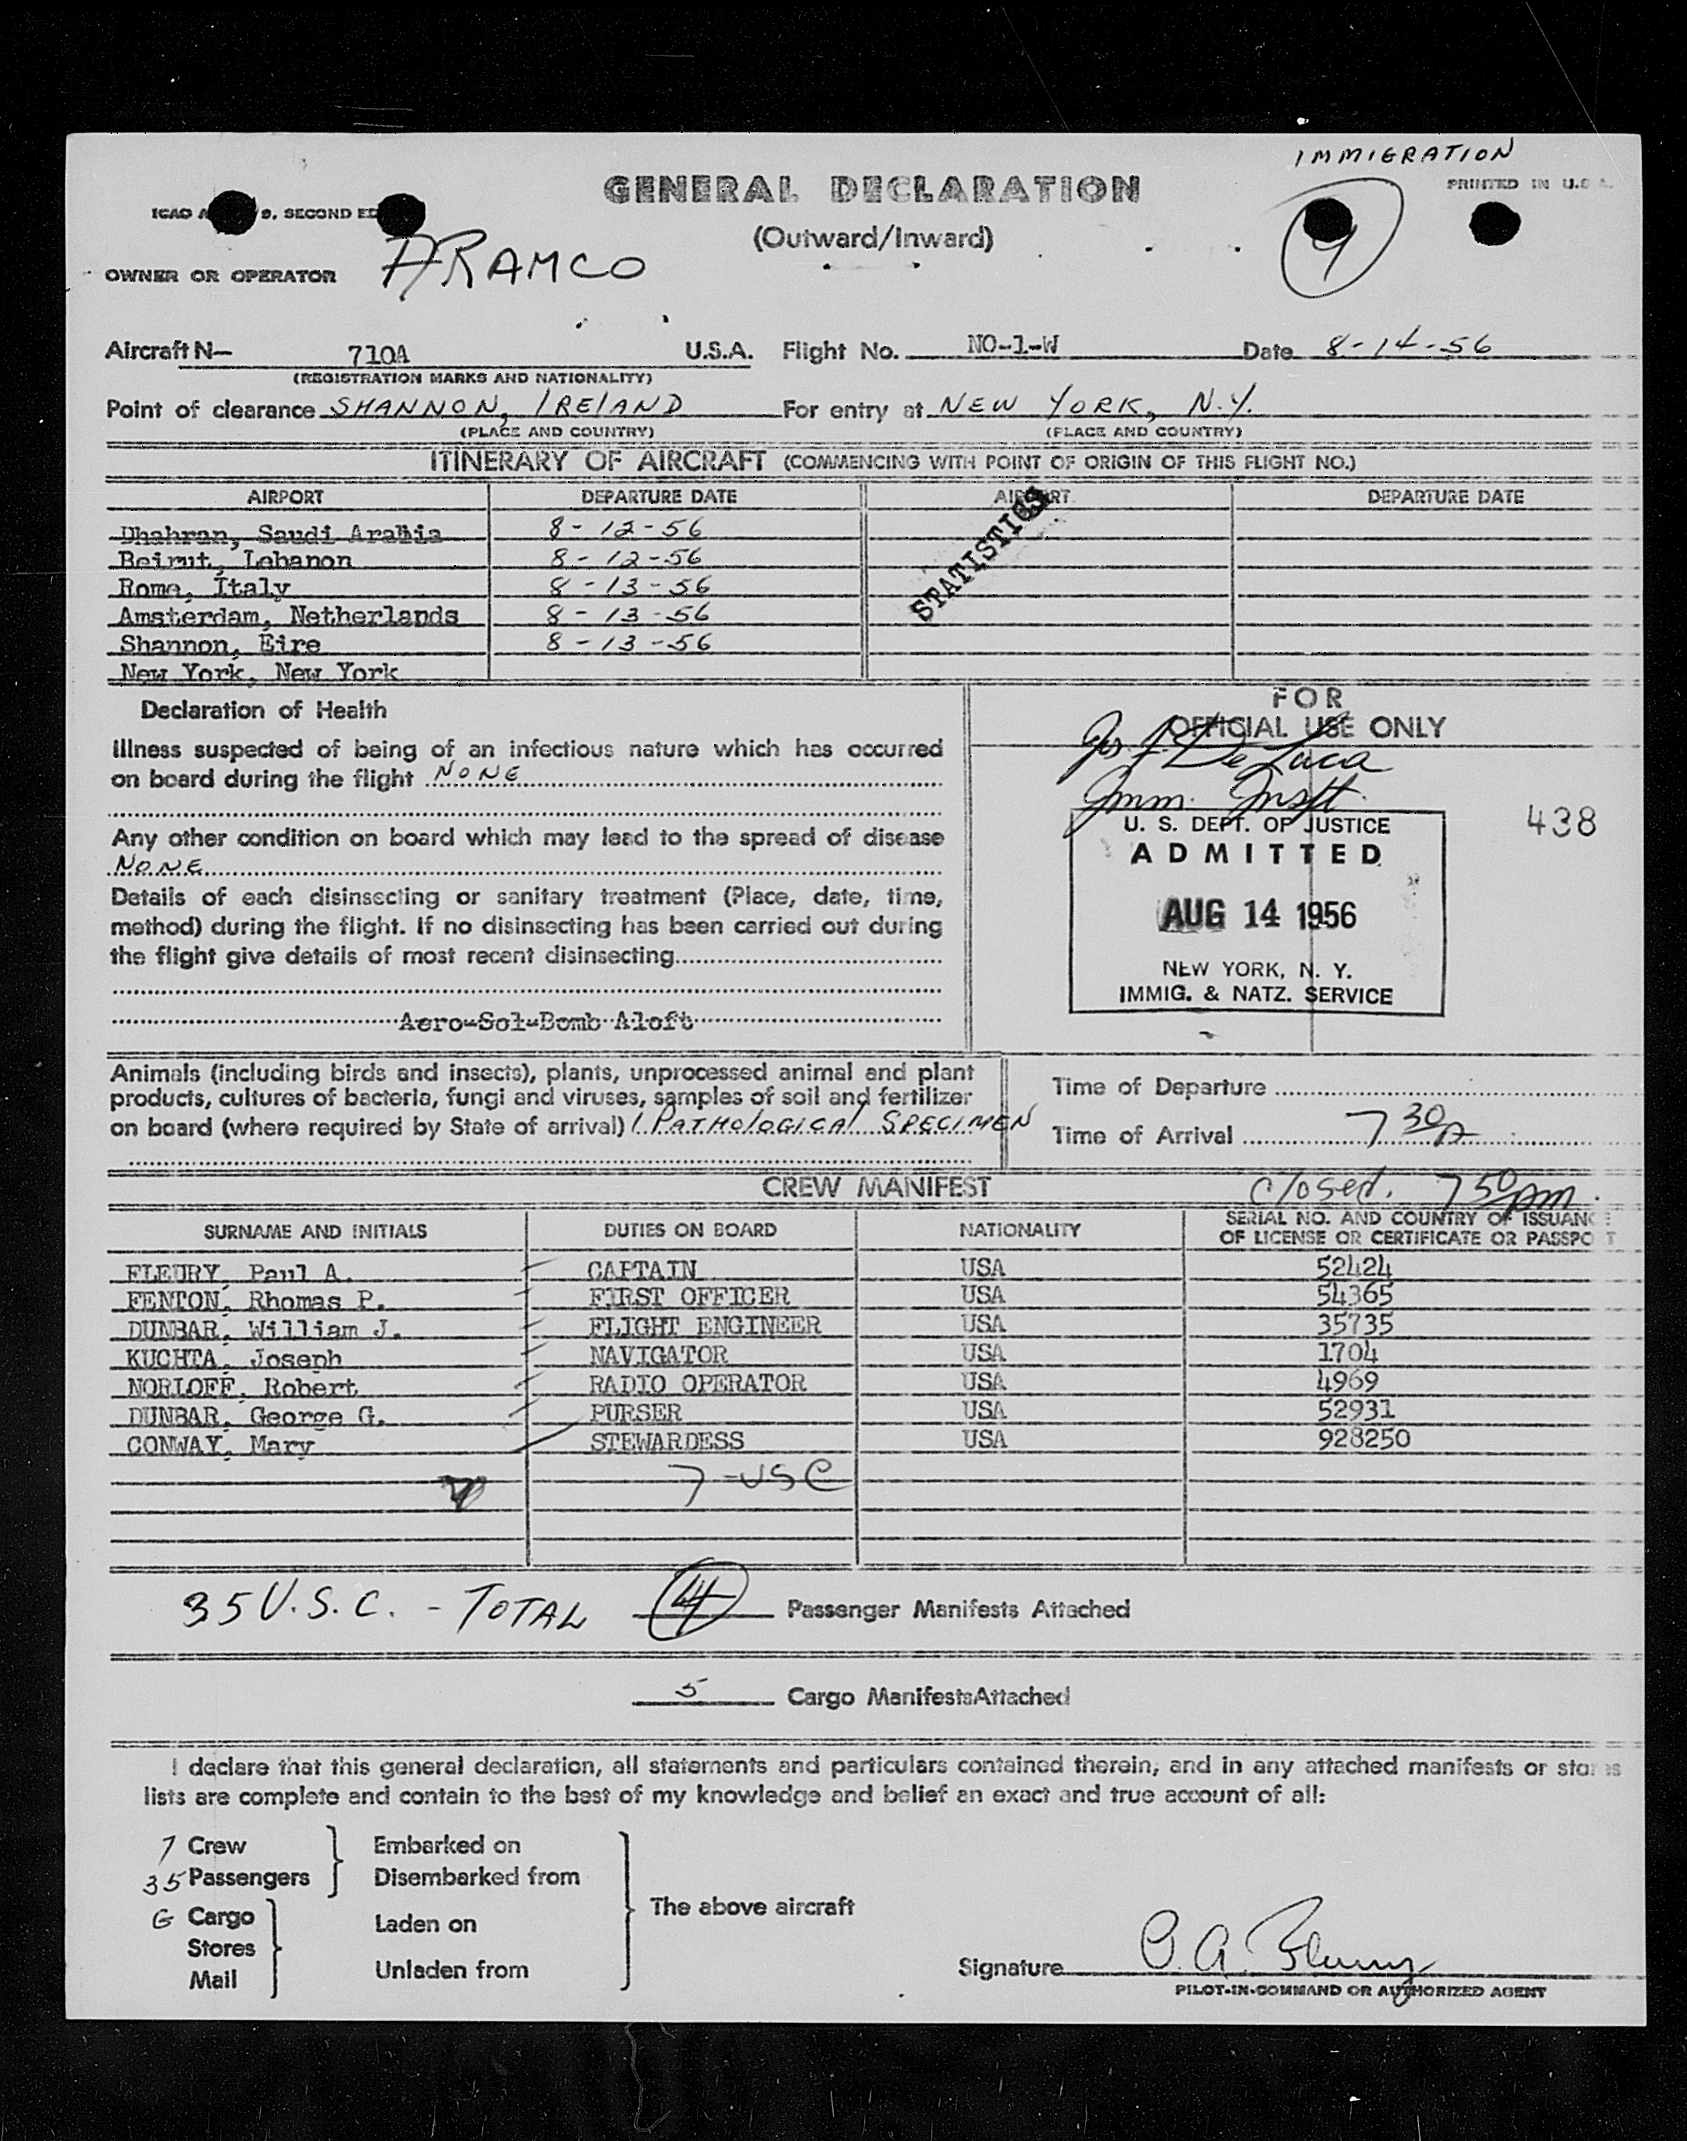 IMMIGRATION
GENERAL DECLARATION
PRINTED IN U.S.A.
9, SECOND ED
(Outward/Inward)
9
OWNER OR OPERATOR ARAMCO
Aircraft N— 710A U.S.A. Flight No. NO-1-W Date 8-14-56
(REGISTRATION MARKS AND NATIONALITY)
Point of clearance SHANNON, IRELAND For entry at NEW YORK, N.Y.
(PLACE AND COUNTRY) (PLACE AND COUNTRY)
ITINERARY OF AIRCRAFT (COMMENCING WITH POINT OF ORIGIN OF THIS FLIGHT NO.)
AIRPORT DEPARTURE DATE AIRPORT DEPARTURE DATE
STATISTICS
Dhahran, Saudi Arabia 8-12-56
Beirut, Lebanon 8-12-56
Rome, Italy 8-13-56
Amsterdam, Netherlands 8-13-56
Shannon, Eire 8-13-56
New York, New York
Declaration of Health
Illness suspected of being of an infectious nature which has occurred
on board during the flight NONE
Any other condition on board which may lead to the spread of disease
NONE
Details of each disinsecting or sanitary treatment (Place, date, time,
method) during the flight. If no disinsecting has been carried out during
the flight give details of most recent disinsecting
Aero-Sol-Bomb Aloft
FOR
OFFICIAL USE ONLY
Jos. De Luca
Imm. Inspt.
U. S. DEPT. OF JUSTICE
ADMITTED
AUG 14 1956
NEW YORK, N. Y.
IMMIG. & NATZ. SERVICE
438
Animals (including birds and insects), plants, unprocessed animal and plant
products, cultures of bacteria, fungi and viruses, samples of soil and fertilizer
on board (where required by State of arrival) 1 PATHOLOGICAL SPECIMEN
Time of Departure
Time of Arrival 7 30p
CREW MANIFEST
Closed. 7 50 pm.
SURNAME AND INITIALS DUTIES ON BOARD NATIONALITY SERIAL NO. AND COUNTRY OF ISSUANCE
OF LICENSE OR CERTIFICATE OR PASSPORT
FLEURY, Paul A. CAPTAIN USA 52424
FENTON, Rhomas P. FIRST OFFICER USA 54365
DUNBAR, William J. FLIGHT ENGINEER USA 35735
KUCHTA, Joseph NAVIGATOR USA 1704
NORLOFF, Robert RADIO OPERATOR USA 4969
DUNBAR, George G. PURSER USA 52931
CONWAY, Mary STEWARDESS USA 928250
7-USC
35 U.S.C. - TOTAL 4 Passenger Manifests Attached
5 Cargo Manifests Attached
I declare that this general declaration, all statements and particulars contained therein, and in any attached manifests or stores
lists are complete and contain to the best of my knowledge and belief an exact and true account of all:
7 Crew
35 Passengers
Embarked on
Disembarked from
G Cargo
Stores
Mail
Laden on
Unladen from
The above aircraft
Signature P. A. Fleury
PILOT-IN-COMMAND OR AUTHORIZED AGENT